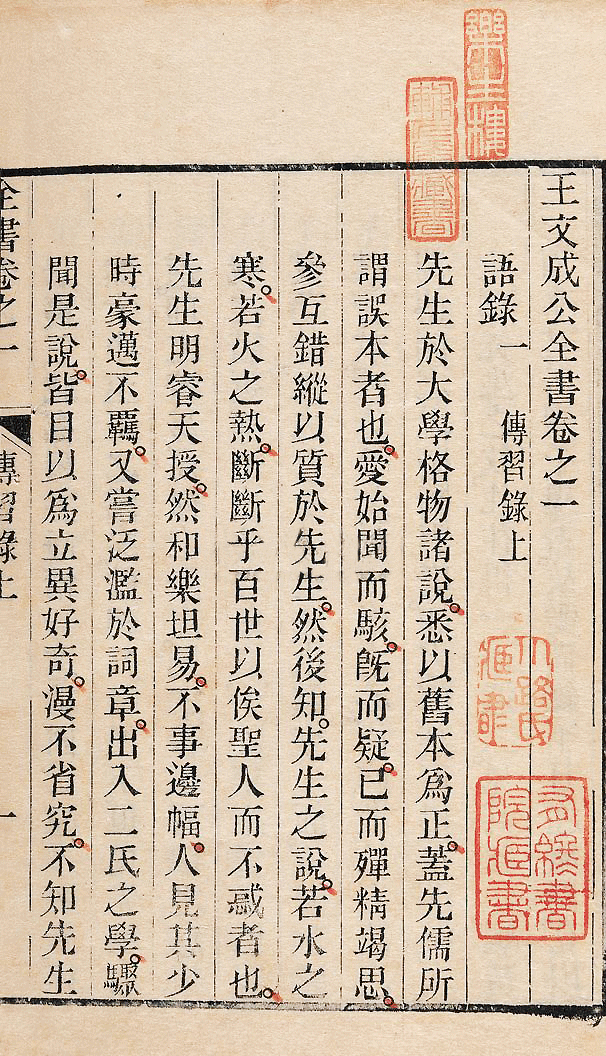 王文成公全書卷之一
語錄一 傳習錄上
先生於大學格物諸說。悉以舊本為正。蓋先儒所
謂誤本者也。愛始聞而駭。既而疑。已而殫精竭思。
參互錯縱以質於先生。然後知先生之說。若水之
寒。若火之熱。斷斷乎百世以俟聖人而不惑者也。
先生明睿天授。然和樂坦易。不事邊幅。人見其少
時豪邁不羈。又嘗泛濫於詞章。出入二氏之學。驟
聞是說。皆目以為立異好奇。漫不省究。不知先生
全書卷之一 傳習錄上 一
藏書
書院
書